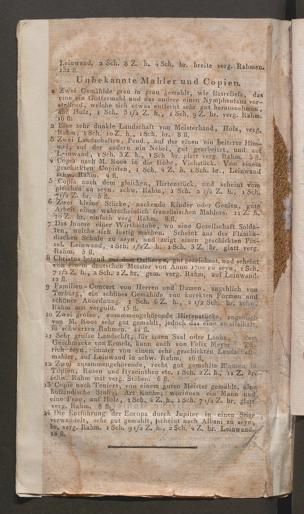 Leinwand, 2 Sch. 8 Z. h. 4 Sch. br. breite verg. Rahmen.
132 fl.
Unbekannte Mahler und Copien.
Zwey Gemählde grau in grau gemahlt, wie Basreliefs, das
eine ein Göttermahl und das andere einen Nymphentanz vor-
stellend, welche sich etwas entfernt sehr gut herausnehmen,
auf Holz, 1 Sch. 9 Z. br. verg. Rahm.
Eine sehr dunkle Landschaft von Meisterhand, Holz, verg.
Rahm, 1 Sch. 10 Z. h. 1 Sch. br. 8 fl.
Zwei Landschaften, Pend., auf der einen ein beitzter Him-
mel, auf der andern gut gearbeitet, und auf
Leinwand, 1 Sch. 3 Z. h. 1 Sch. br. glatt verg. Rahm. 8 fl.
Copie nach M. Roos in die Höhe, Viehstück. Von einem
geschickten Copisten, 1 Sch. 4 Z. h. 1 Sch. br., Leinwand
schw. Rahm. 4 fl.
5 Copie nach dem gleichen, Hirtenstück, und scheint vom
gleichen zu seyn. schw. Rahm,
6 Zwei kleine Stücke, nackende Kinder oder Genien, gute
Arbeit eines wahrscheinlich französischen Mahlers. 11 Z. h.
10 Z. br. einfach verg. Rahm. 8 fl.
7 Das Innere einer Wirthsstube, wo eine Gesellschaft Solda-
ten, welche sich lustig machen. Scheint aus der Flamän-
dischen Schule zu seyn, und zeigt einen geschickten Pin-
sel. Leinwand, 1 Sch. br. verg.
Rahm. 8 fl.
8 Christus betend auf dem Oelberge, gut gezeichnet, und scheint
von einem deutschen Meister von Anno 1700 zu seyn, 1 Sch.
7 1/2 Z. h., 2 Sch. 2 Z. br. gem. verg. Rahm. auf Leinwand.
12 fl.
9 Familien-Concert von Herren und Damen, angeblich von
Terburg, ein schönes Gemählde von korrekten Formen und
schöner Anordnung, 1 Sch. 8 Z. h., br. ohne
Rahm. 15 fl.
10 Zwei grosse, zusammengehörende Hirtenstücke, angeblich
von M. Roos sehr gut gemahlt, jedoch das eine
in schwarzen Rahmen. fl.
11 Sehr grosse Landschaft, für einen Saal oder Lokus, dem
Geschmacke von Ermels, kann auch von Felix Meyer
rich seyn, immer von einem sehr geschickten Landschaft-
mahler, auf Leinwand in schw. Rahm. fl.
12 Zwei zusammengehörende, recht gut gemahlte Blumen in
Töpfen, Rosen und Hyacinthen etc. 1 Sch. 2 Z. h. 11 Z. br.
schw. Rahm mit verg. Stäben. 6 fl.
13 Copie nach Teniers, von einem guten Meister gemahlt, eine
holländische Stube, Art Küche, worinnen ein Mann und
eine Frau, auf Holz, 1 Sch. 4 Z. h., 1 Sch. 7 1/2 Z. br. glatt
verg. Rahm. 8 fl.
14 Die Entführung der Europa durch Jupiter in einen Stier
verwandelt, sehr gut gemahlt, scheint nach Albani zu seyn,
in verg. Rahm. 1 Sch. 9 1/2 Z. h., 2 Sch. 4 Z. br. Leinwand.
18 fl.